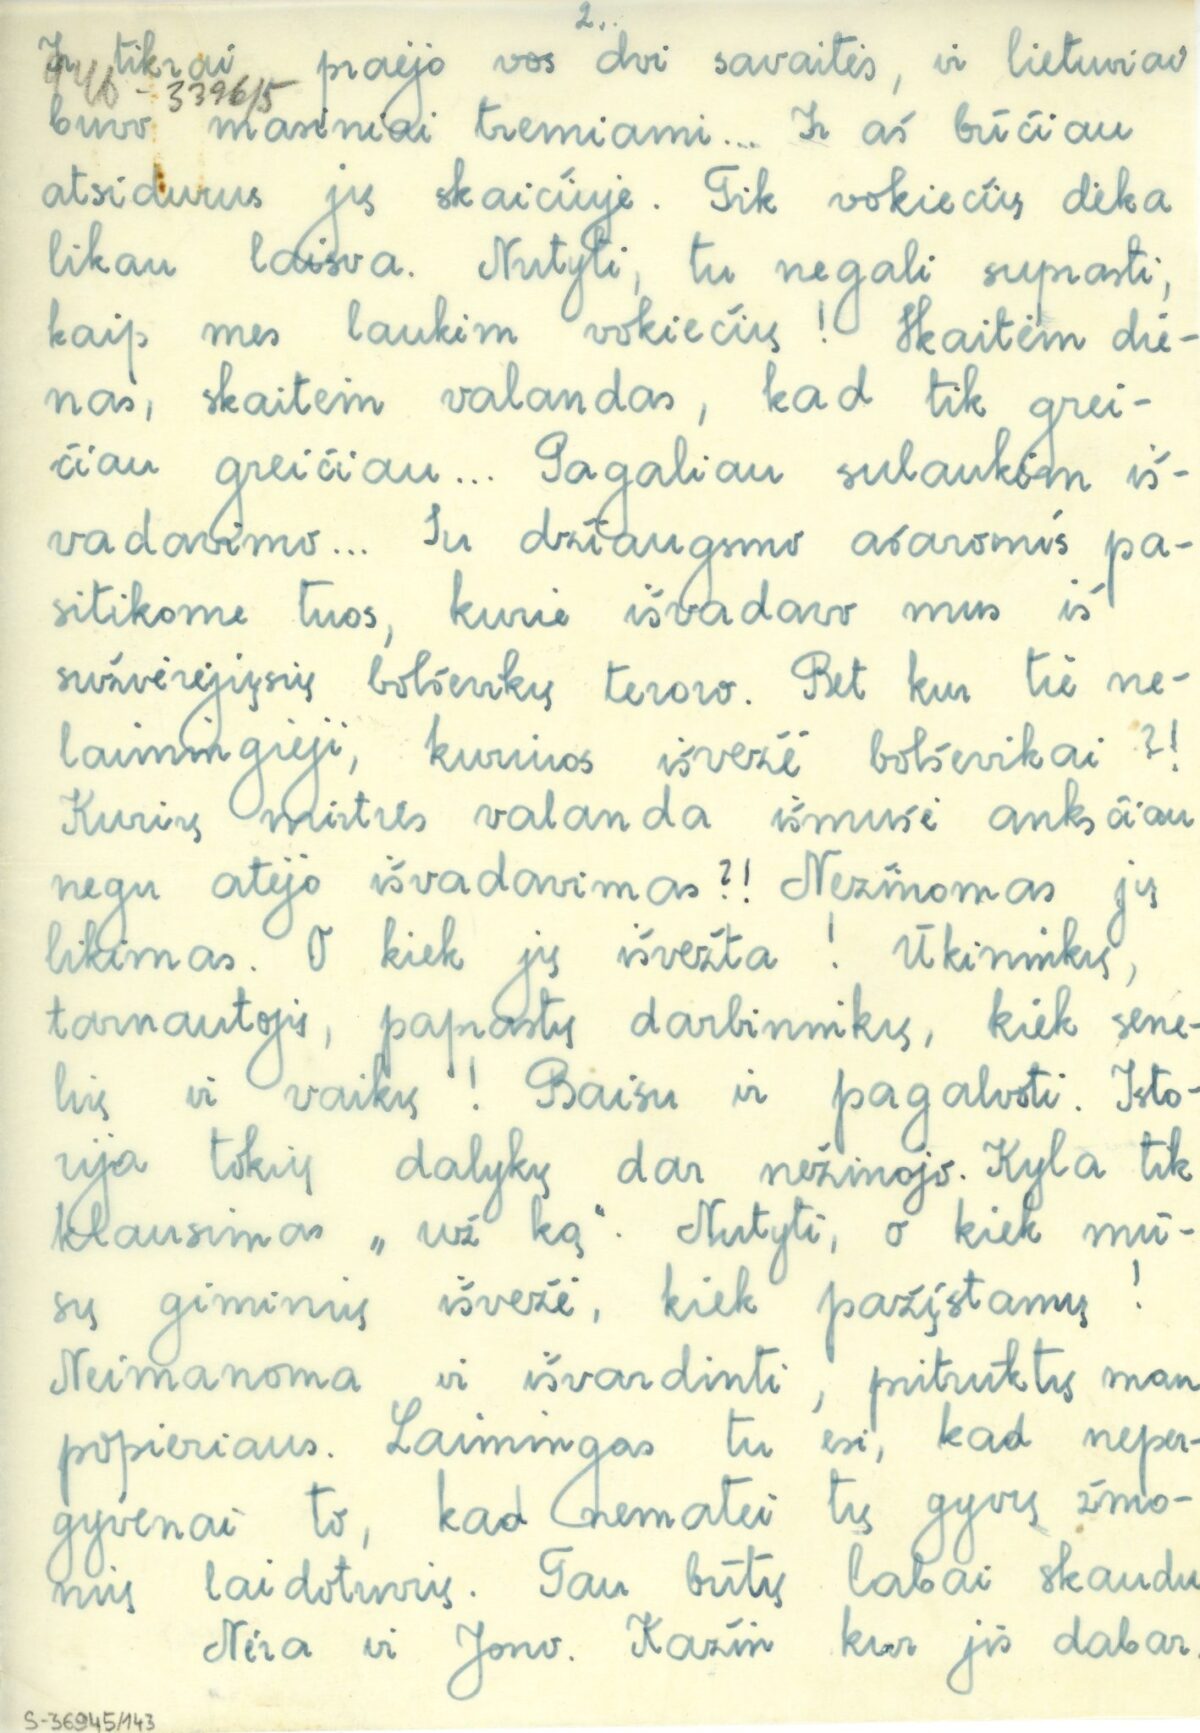 2..
Ir tikrai praėjo vos dvi savaitės, ir lietuviai
3396/5
buvo masiniai tremiami... Ir aš būčiau
atsidurus jų skaičiuje. Tik vokiečių dėka
likau laisva. Nutyti, tu negali suprasti,
kaip mes laukėm vokiečių! Skaitėm die-
nas, skaitėm valandas, kad tik grei-
čiau greičiau... Pagaliau sulaukėm iš-
vadavimo... Su džiaugsmo ašaromis pa-
sitikome tuos, kurie išvadavo mus iš
sužvėrėjusių bolševikų teroro. Bet kur tie ne-
laimingieji, kuriuos išvežė bolševikai?!
Kurių mirties valanda išmušė anksčiau
negu atėjo išvadavimas?! Nežinomas jų
likimas. O kiek jų išvežta! Ūkininkų,
tarnautojų, paprastų darbininkų, kiek sene-
lių ir vaikų! Baisu ir pagalvoti. Isto-
rija tokių dalykų dar nežinojo. Kyla tik
klausimas „už ką“. Nutyti, o kiek mū-
sų giminių išvežė, kiek pažįstamų!
Neįmanoma ir išvardinti, pritruktų man
popieriaus. Laimingas tu esi, kad neper-
gyvenai to, kad nematei tų gyvų žmo-
nių laidotuvių. Tau būtų labai skaudu
Nėra ir Jono. Kažin kur jis dabar.
S-36945/143